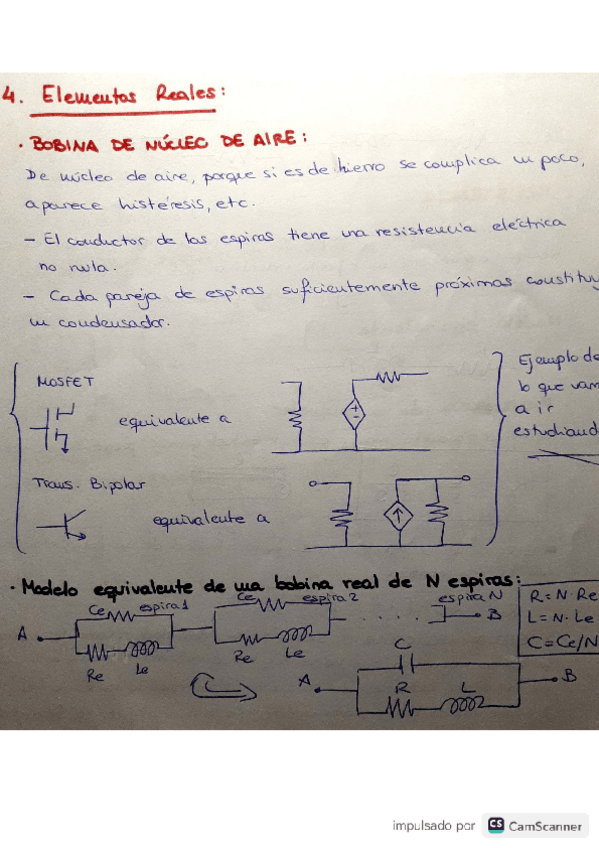 4. Elementos Reales:
· BOBINA DE NÚCLEO DE AIRE:
De núcleo de aire, porque si es de hierro se complica un poco,
aparece histéresis, etc.
- El conductor de las espiras tiene una resistencia eléctrica
no nula.
- Cada pareja de espiras suficientemente próximas constituy
un condensador.
MOSFET
equivalente a
Ejemplo de
lo que vam
a ir
estudiand
Trans. Bipolar
equivalente a
· Modelo equivalente de una bobina real de N espiras:
Ce espira 1 Ce espira 2 espira N
A B
Re Le Re Le
R = N · Re
L = N · Le
C = Ce/N
C
A B
R L
impulsado por CS CamScanner